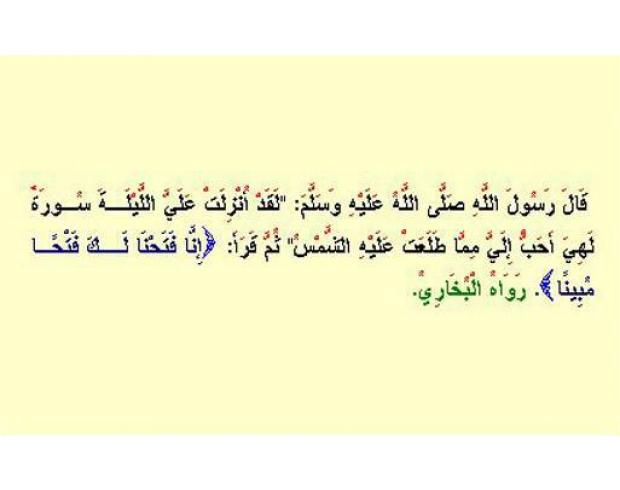 قَالَ رَسُولَ اللَّهِ صَلَّى اللَّهُ عَلَيْهِ وَسَلَّمَ: "لَقَدْ أُنْزِلَتْ عَلَيَّ اللَّيْلَـــةَ سُــورَةٌ
لَهِيَ أَحَبُّ إِلَيَّ مِمَّا طَلَعَتْ عَلَيْهِ الشَّمْسُ" ثُمَّ قَرَأَ: ﴿إِنَّا فَتَحْنَا لَــكَ فَتْحًــا
مُبِينًا﴾. رَوَاهُ الْبُخَارِيُّ.